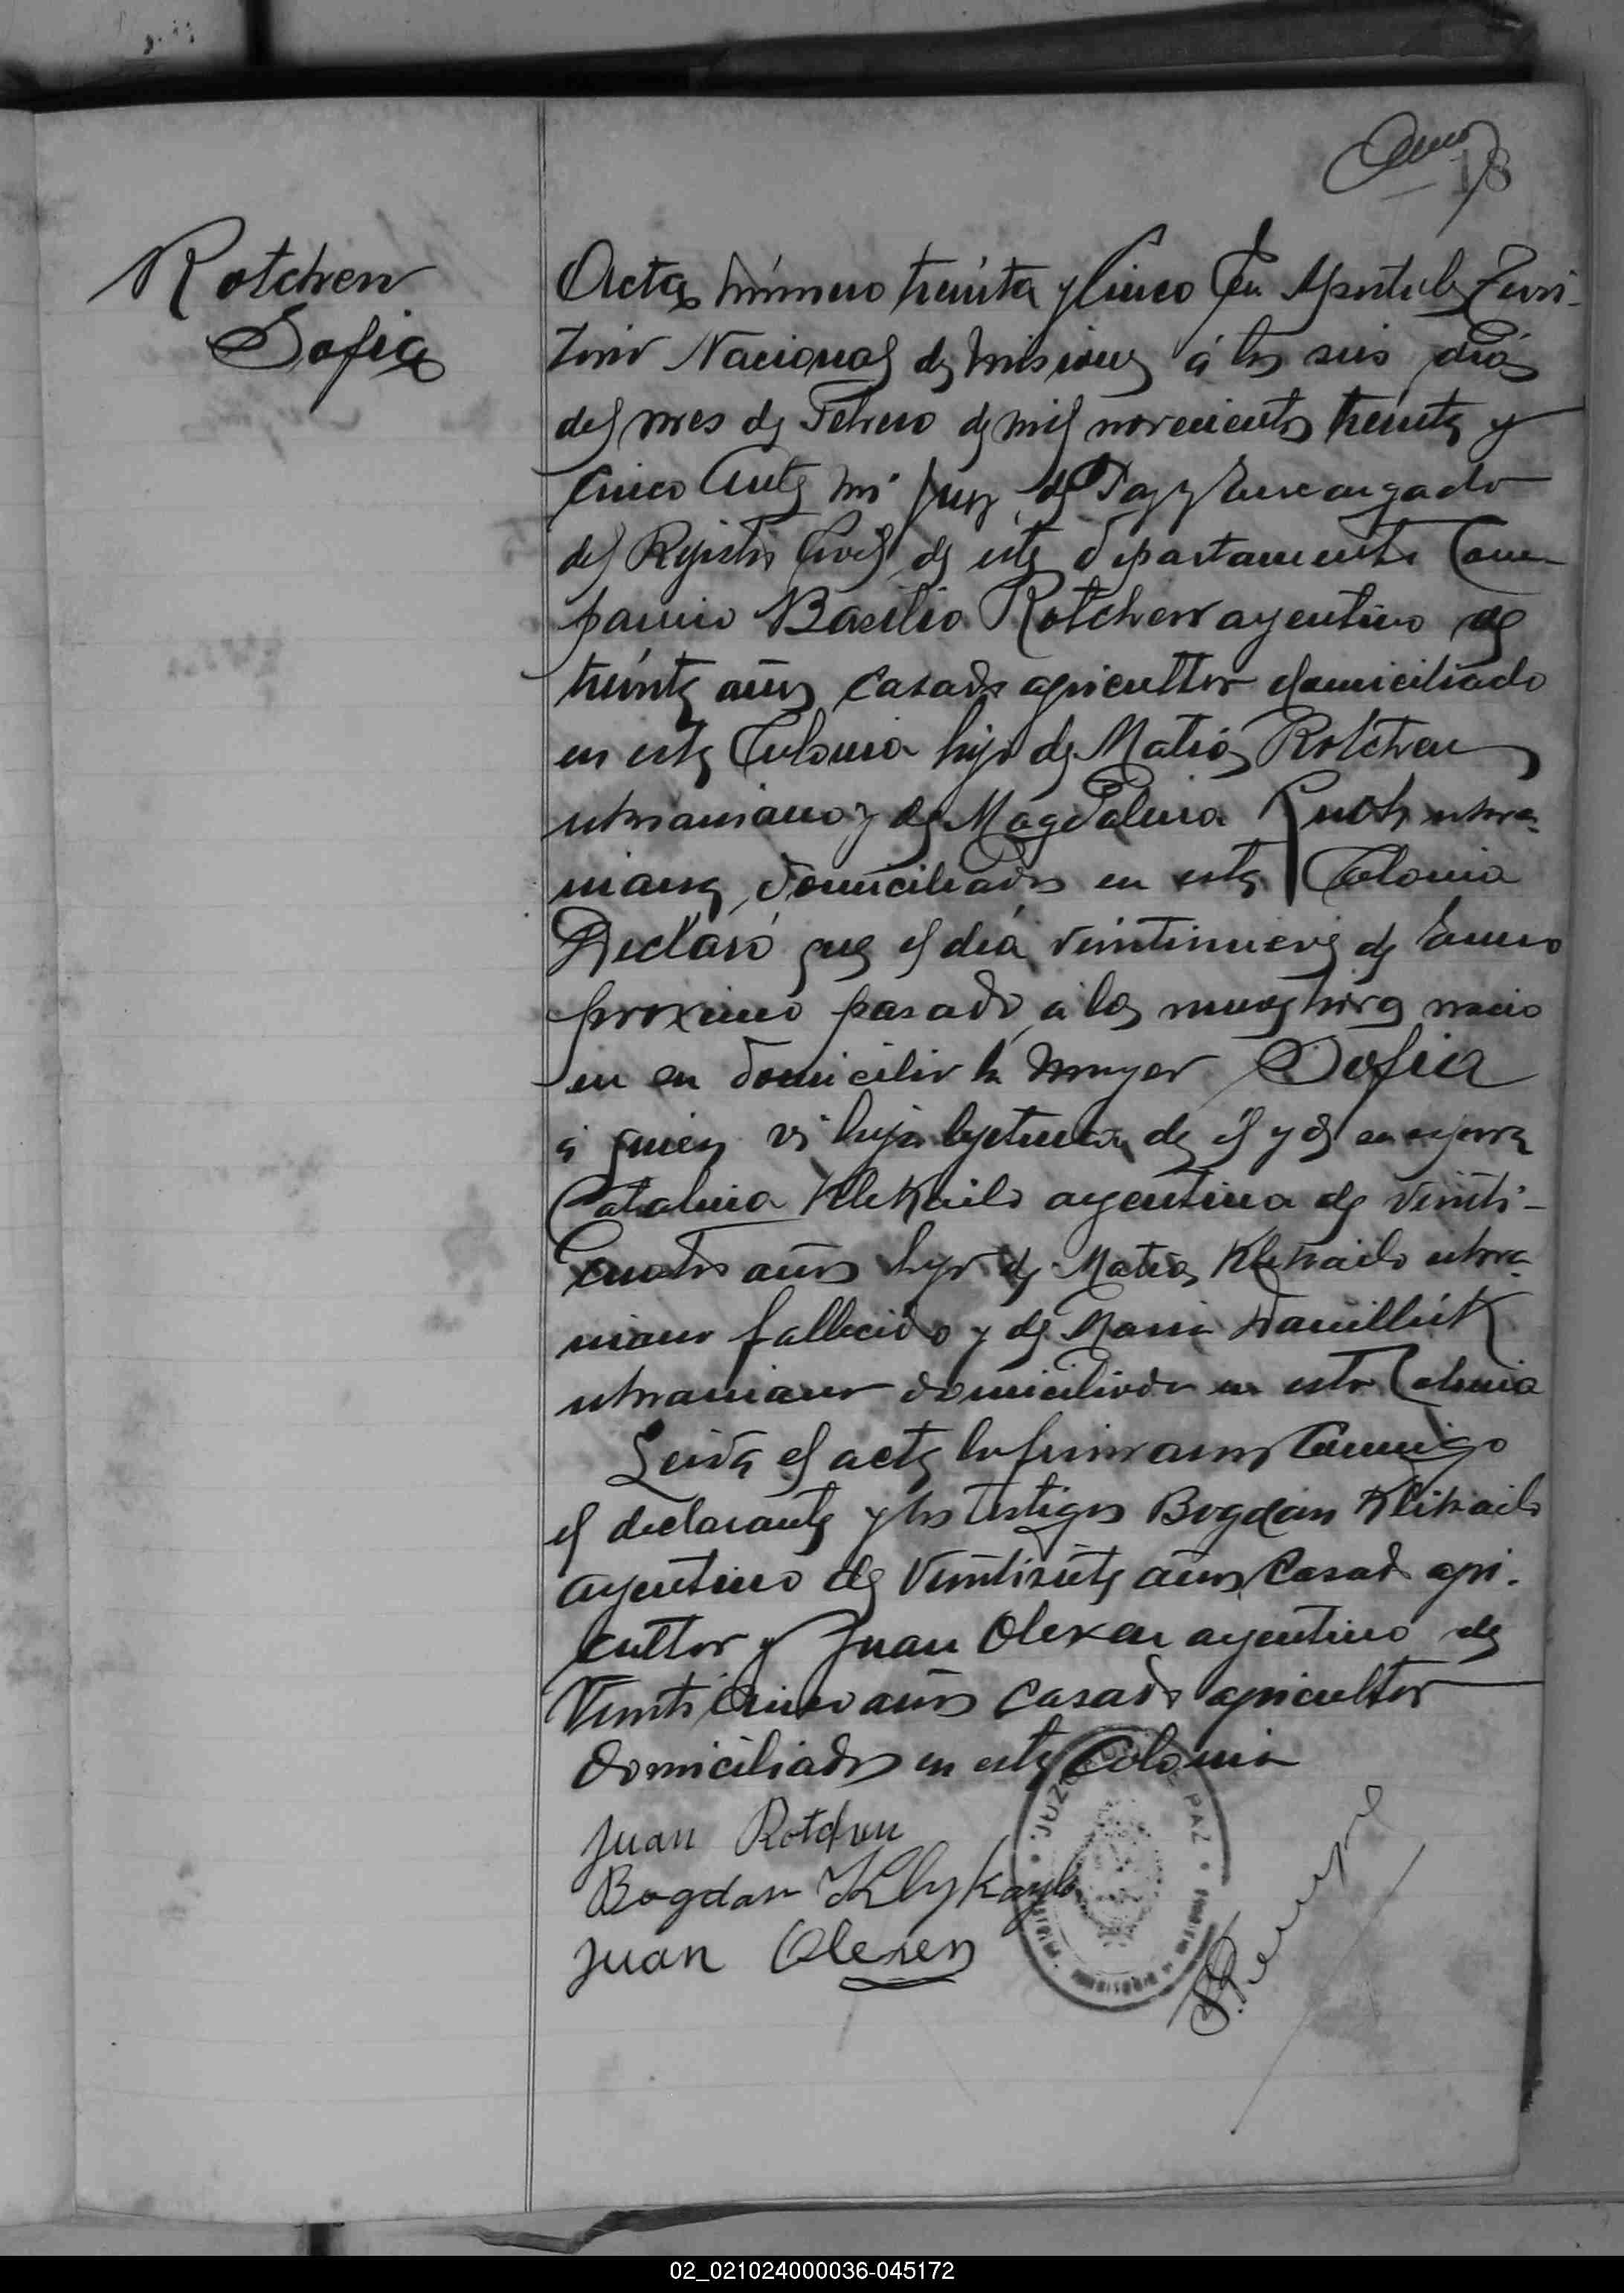 18
Rotchen
Sofia
Acta número treinta y cinco En Apostoles Terri-
torio Nacional de Misiones á los seis dias
del mes de Febrero de mil novecientos treinta y
cinco Ante mi Juez de Paz y Encargado
del Registro Civil de este departamento Com-
parecio Basilio Rotchen argentino de
treinta años casado agricultor domiciliado
en esta Colonia hijo de Matias Rotchen
ukraniano y de Magdalena ukra-
niana domiciliados en esta Colonia
Declaró que el dia veintinueve de Enero
proximo pasado á las nueve horas nacio
en su domicilio la mujer Sofia
á quien vi hija lejitima de él y de su esposa
Catalina Klekailo argentina de veinti-
cuatro años hija de Matias Klekailo ukra-
niano fallecido y de Maria Daneilluk
ukraniana domiciliada en esta Colonia
Leida el acta la firmaron Conmigo
el declarante y los testigos Bogdan Klikailo
argentino de veintisiete años casado agri-
cultor y Juan Olexen argentino de
veinticinco años casado agricultor
domiciliados en esta Colonia
Juan Rotchen
Bogdan Klykaylo
Juan Olexen
JUZGADO DE PAZ
02_021024000036-045172